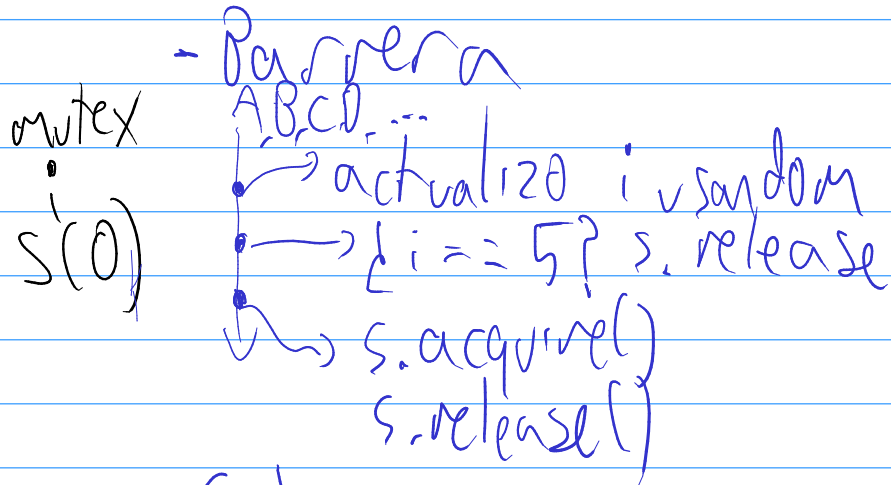 - Barrera
A, B, C, D, ...
mutex
i
s(0)
actualizo i usandom
¿i == 5? s.release
s.acquire()
s.release()